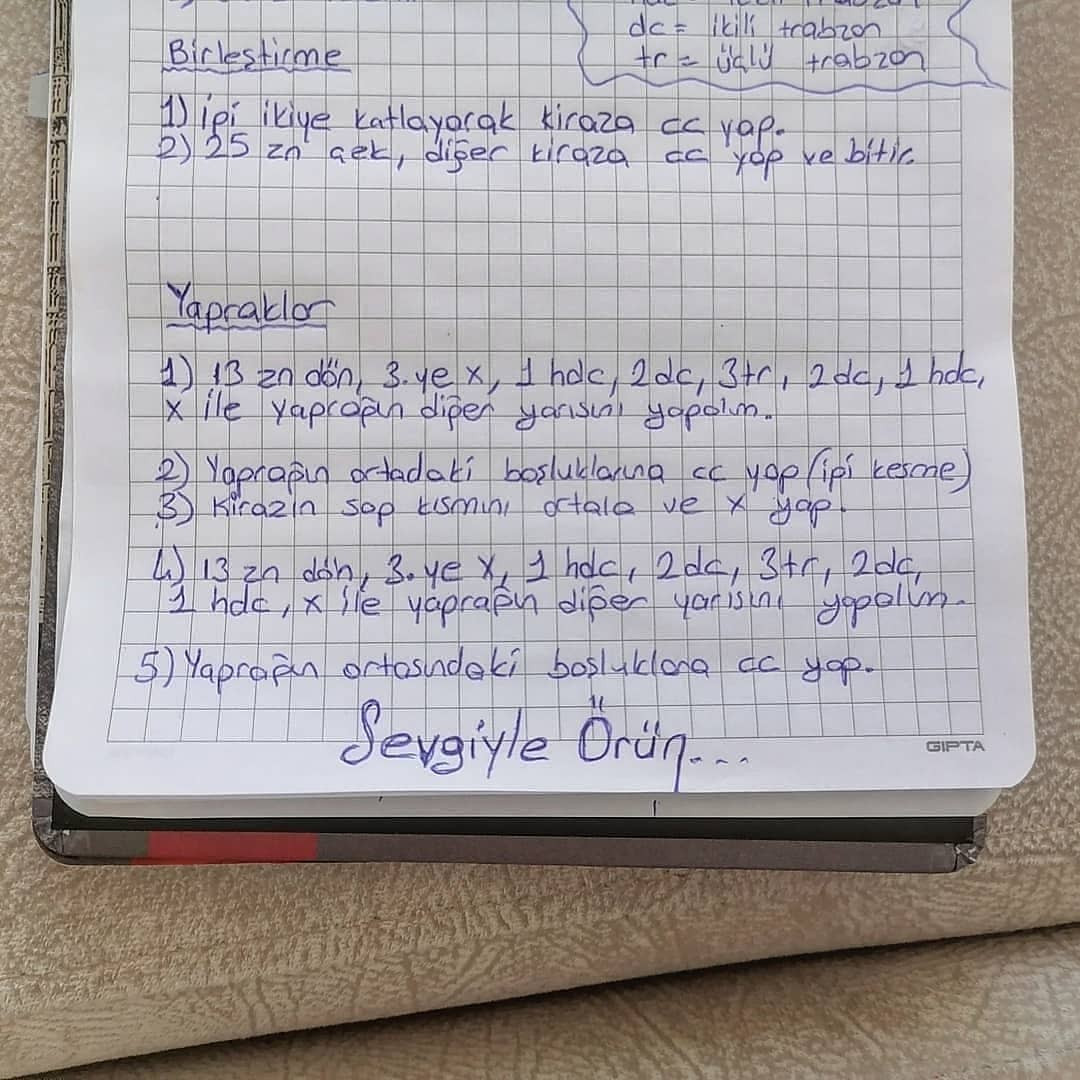 dc = ikili trabzon
tr = üçlü trabzon
Birleştirme
1) İpi ikiye katlayarak kiraza cc yap.
2) 25 zn çek, diğer kiraza cc yap ve bitir.
Yapraklar
1) 13 zn dön, 3.ye x, 1 hdc, 2dc, 3tr, 2dc, 1 hdc,
x ile yaprağın diğer yarısını yapalım.
2) Yaprağın ortadaki boşluklarına cc yap (ipi kesme)
3) Kirazın sap kısmını ortala ve x yap.
4) 13 zn dön, 3.ye x, 1 hdc, 2dc, 3tr, 2dc,
1 hdc, x ile yaprağın diğer yarısını yapalım.
5) Yaprağın ortasındaki boşluklara cc yap.
Sevgiyle Örün...
GIPTA